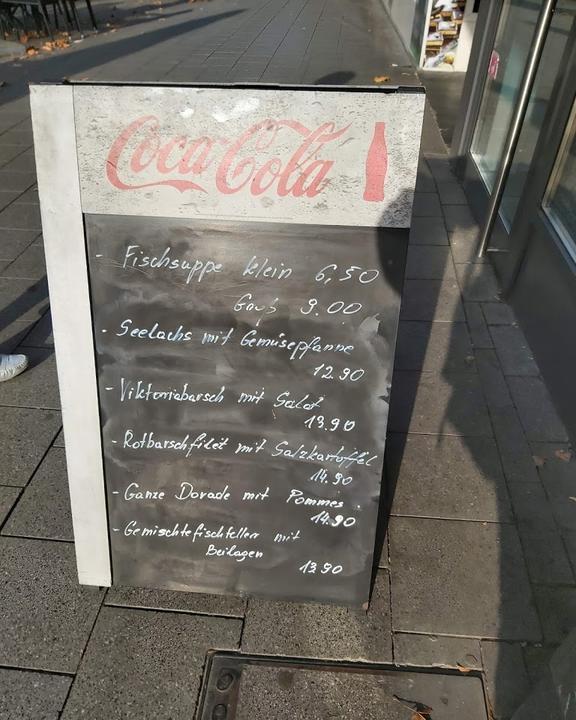 Coca-Cola
- Fischsuppe klein 6,50
Groß 9.00
- Seelachs mit Gemüsepfanne
12.90
- Viktoriabarsch mit Salat
13.90
- Rotbarschfilet mit Salzkartoffel
14.90
- Ganze Dorade mit Pommes.
14.90
- Gemischtefischteller mit
Beilagen
13.90